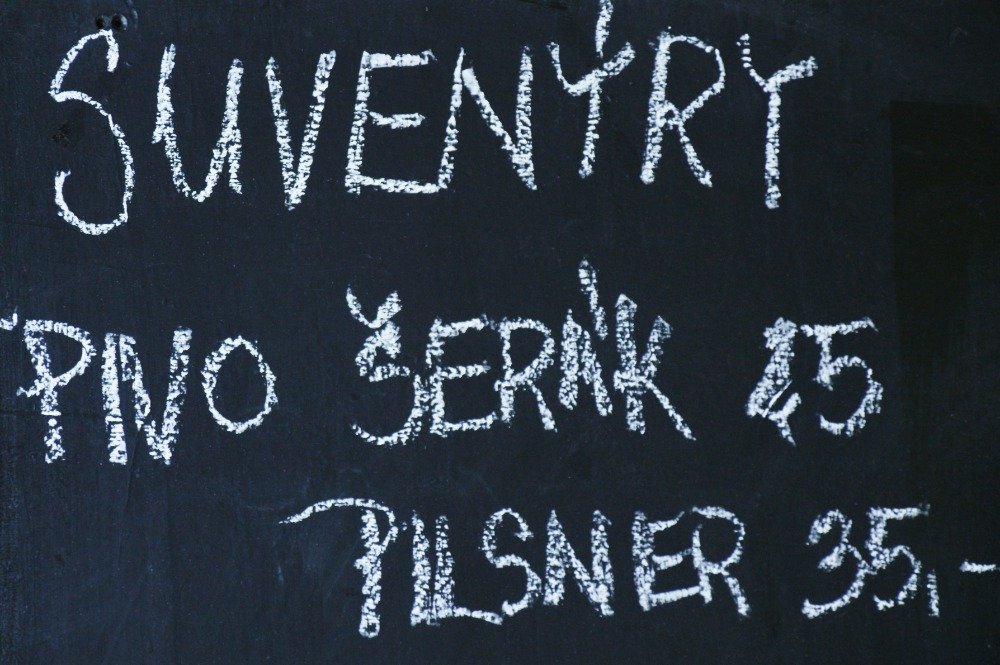 SUVENÝRY
PIVO ŠERÁK 25
PILSNER 35,-